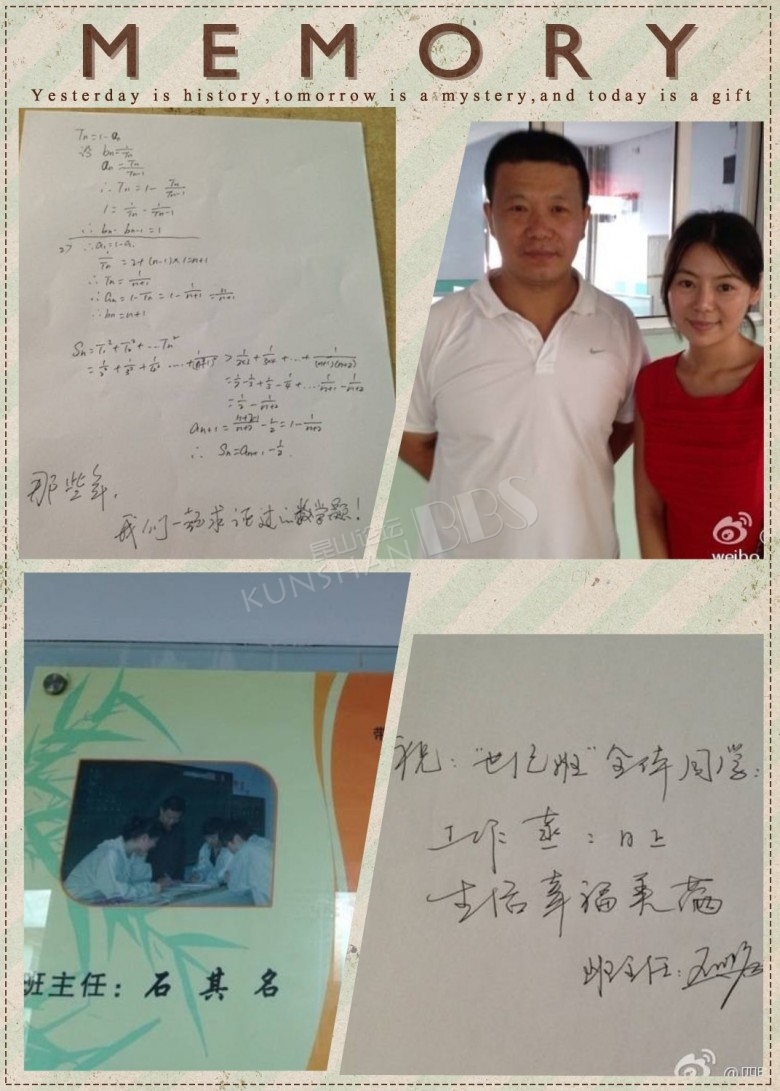 MEMORY
Yesterday is history,tomorrow is a mystery,and today is a gift
Tn=1-an
设 bn=1/Tn
an=Tn/Tn-1
∴ Tn=1- Tn/Tn-1
1=1/Tn-1/Tn-1
∴ bn-bn-1=1
2> ∴a1=1-a1
1/Tn=2+(n-1)×1=n+1
∴ Tn=1/n+1
∴ an=1-Tn=1-1/n+1=n/n+1
∴ bn=n+1
Sn=T1²+T2²+...Tn²
=1/2²+1/3²+1/4²....+1/(n+1)²>1/2×3+1/3×4+...+1/(n+1)(n+2)
=1/2-1/3+1/3-1/4+...1/n+1-1/n+2
=1/2-1/n+2
an+1=n+2-1/n+2-1/2=1-1/n+2
∴ Sn=an+1-1/2.
那些年,
我们一起求证过的数学题!
昆山论坛
KUNSHAN BBS
weibo
带
班主任：石其名
祝："世纪班"全体同学：
工作 蒸：日上
生活幸福美满
班主任：石其名